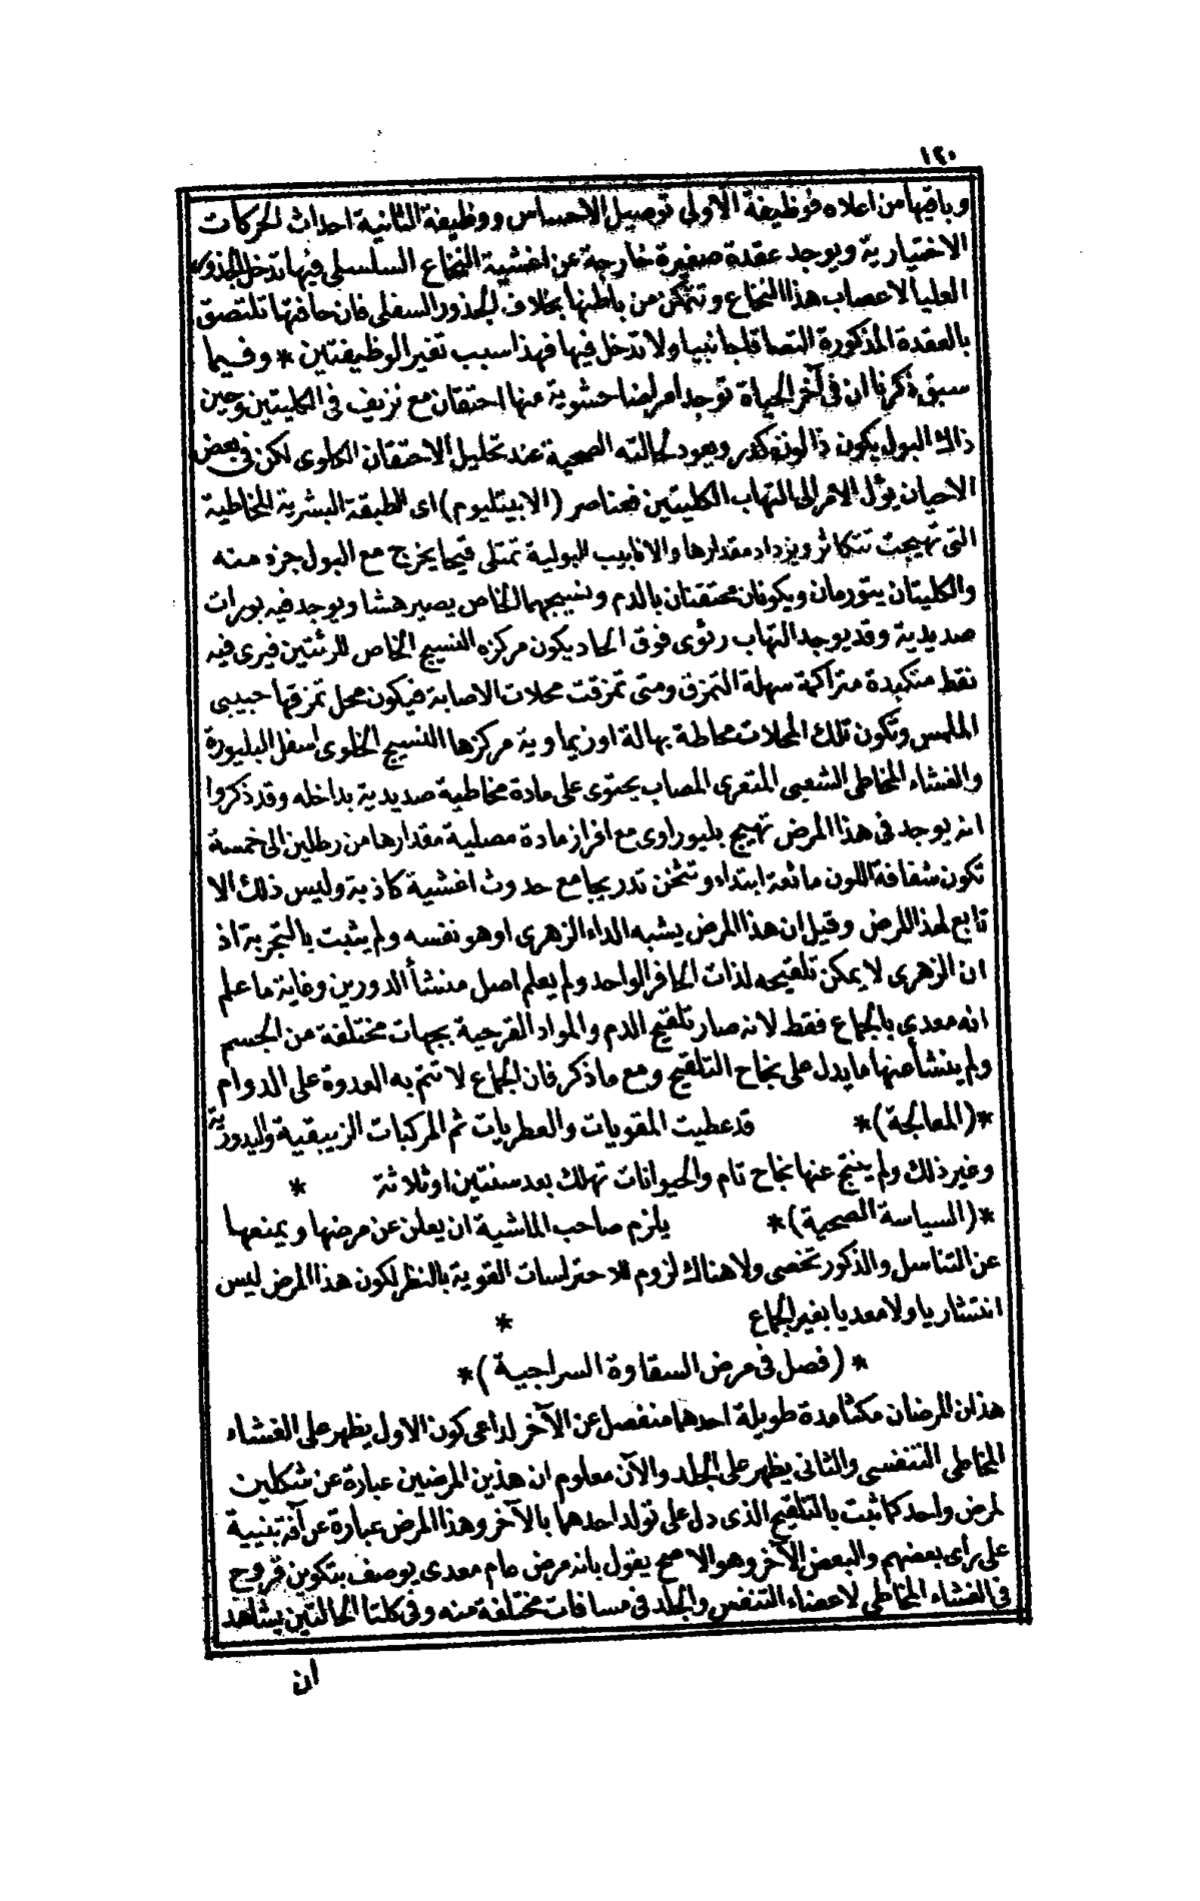 ١٢٠
وباقيها من اعلاه فوظيفة الاولى توصيل الاحساس ووظيفة الثانية احداث الحركات
الاختيارية ويوجد عقدة صغيرة خارجة عن اغشية النخاع السلسلى فيها تدخل الجذور
العليا لاعصاب هذا النخاع وتتمكن من باطنها بخلاف الجذور السفلى فان حافتها تلتصق
بالعقدة المذكورة التصاقا جانبيا ولا تدخل فيها فهذا سبب تغير الوظيفتين * وفيما
سبق ذكرنا ان فى آخر الحياة توجد امراضا حشوية منها احتقان مع نزيف فى الكليتين وحين
ذاك البول يكون ذا لون كدر ويعود لحالته الصحية عند تحليل الاحتقان الكلوى لكن فى بعض
الاحيان يؤل الامر الى التهاب الكليتين فعناصر (الابيتليوم) اى الطبقة البشرية المخاطية
التى تهيجت تتكاثر ويزداد مقدارها والانابيب البولية تمتلى قيحا يخرج مع البول جزء منه
والكليتان يتورمان ويكونان محتقنتان بالدم ونسيجهما الخاص يصير هشا ويوجد فيه بورات
صديدية وقد يوجد التهاب رئوى فوق الحاد يكون مركزه النسيج الخاص للرئتين فيرى فيه
نقط متكبدة متراكمة سهلة التمزق ومتى تمزقت محلات الاصابة فيكون محل تمزقها حبيبى
الملمس وتكون تلك المحلات محاطة بهالة اوزيماوية مركزها النسيج الخلوى اسفل البليورة
والغشاء المخاطى الشعبى المتعرى المصاب يحتوى على مادة مخاطية صديدية بداخله وقد ذكروا
انه يوجد فى هذا المرض تهيج بليوراوى مع افراز مادة مصلية مقدارها من رطلين الى خمسة
تكون شفافة اللون مائعة ابتداء وتثخن تدريجا مع حدوث اغشية كاذبة وليس ذلك الا
تابع لهذا المرض وقيل ان هذا المرض يشبه الداء الزهرى او هو نفسه ولم يثبت بالتجربة اذ
ان الزهرى لا يمكن تلقيحه لذات الحافر الواحد ولم يعلم اصل منشأ الدورين وغاية ما علم
انه معدى بالجماع فقط لانه صار تلقيح الدم والمواد القرحية بجهات مختلفة من الجسم
ولم ينشأ عنها ما يدل على نجاح التلقيح ومع ما ذكر فان الجماع لا تتم به العدوة على الدوام
*(المعالجة)* قد عطيت المقويات والعطريات ثم المركبات الزيبقية واليدورية
وغير ذلك ولم ينتج عنها نجاح تام والحيوانات تهلك بعد سنتين او ثلاثة *
*(السياسة الصحية)* يلزم صاحب الماشية ان يعلن عن مرضها ويمنعها
عن التناسل والذكور تخصى ولا هناك لزوم للاحتراسات القوية بالنظر لكون هذا المرض ليس
انتشاريا ولا معديا بغير الجماع *
*(فصل فى مرض السقاوة السراجية)*
هذان المرضان مكثا مدة طويلة احدهما منفصل عن الآخر لداعى كون الاول يظهر على الغشاء
المخاطى التنفسى والثانى يظهر على الجلد والآن معلوم ان هذين المرضين عبارة عن شكلين
لمرض واحد كما ثبت بالتلقيح الذى دل على تولد احدهما بالآخر وهذا المرض عبارة عن آفة بنيية
على رأى بعضهم والبعض الآخر وهو الاصح يقول بانه مرض عام معدى يوصف بتكوين قروح
فى الغشاء المخاطى لاعضاء التنفس والجلد فى مسافات مختلفة منه وفى كلتا الحالتين يشاهد
ان